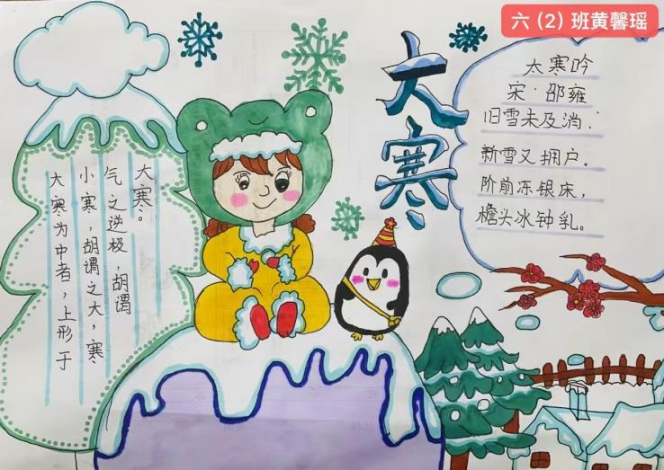 六（2）班黄馨瑶
大寒
大寒吟
宋·邵雍
旧雪未及消，
新雪又拥户。
阶前冻银床，
檐头冰钟乳。
大寒：
气之逆极，胡谓
小寒，胡谓之大，寒
大寒为中者，上形于